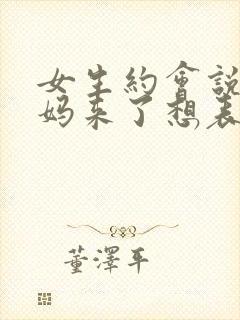 女生約會說
妈来了想表
董澤平